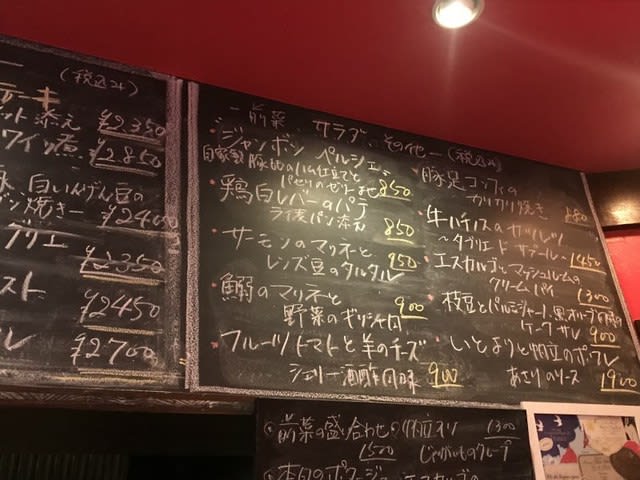 (税込み)
ット添え ¥2,350
ワイン煮 ¥2,850
白いんげん豆の
焼き ¥2400
¥2350
スト ¥2450
レ ¥2,700
一前菜、サラダ、その他一(税込み)
・ジャンボン ペルシエ
自家製 豚もものハム仕立てと
パセリのゼリー寄せ 850
・鶏白レバーのパテ
ライ麦パン添え 850
・サーモンのマリネと
レンズ豆のタルタル 950
・鰯のマリネと
野菜のギリシャ風 900
・フルーツトマトと羊のチーズ
シェリー酒酢風味 900
・豚足コンフィの
カリカリ焼き 880
・牛ハチノスのカツレツ
〜タブリエ ド サプール〜 1450
・エスカルゴとマッシュルームの
クリームパイ 1300
・枝豆とパルミジャーノ、黒オリーブの
ケークサレ 900
・いとよりと帆立のポワレ
あさりのソース 1900
前菜の盛り合わせ 1500
1300
じゃがいものクレープ
本日のポタージュ